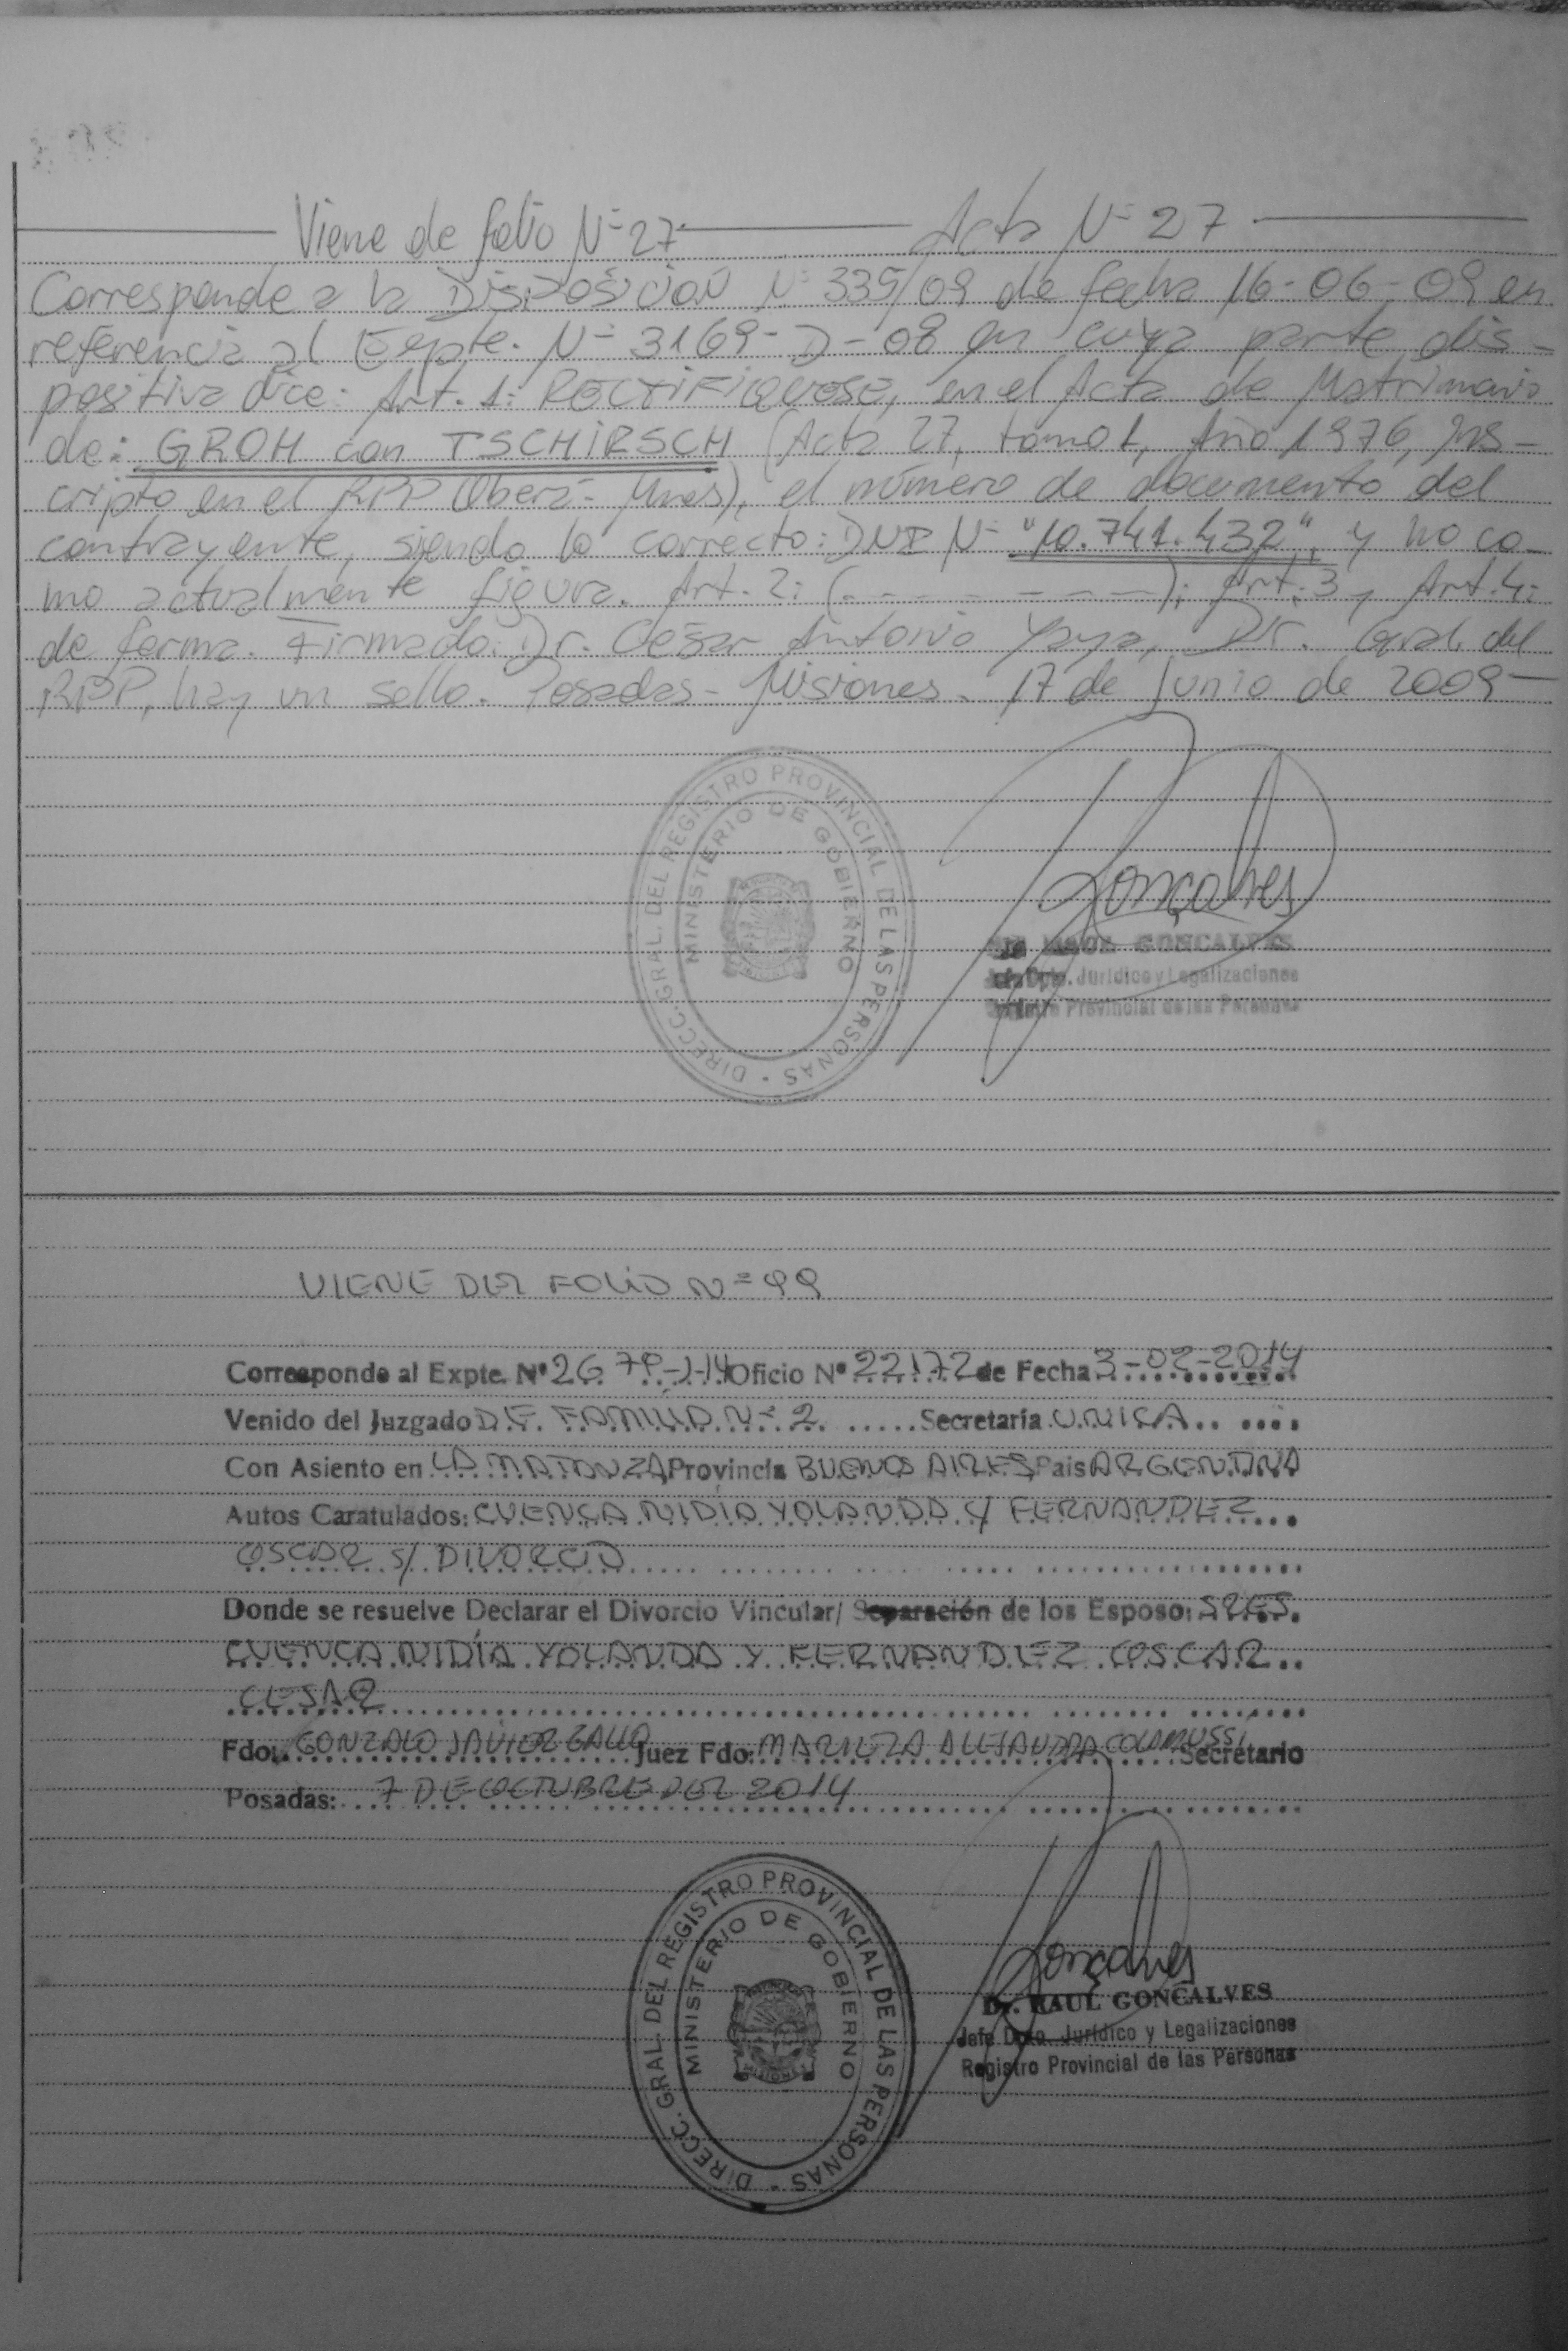 Viene de folio Nº 27 Acta Nº 27
Corresponde a la DISPOSICION Nº 335/09 de fecha 16-06-09 en
referencia al Expte. Nº 3169-D-08 en cuya parte dis-
positiva dice: Art. 1: RECTIFIQUESE, en el Acta de Matrimonio
de: GROH con TSCHIRSCH (Acta 27, tomo 1, Año 1976, Ins-
cripto en el RPP Oberá - Mnes), el número de documento del
contrayente, siendo lo correcto: DNI Nº "10.741.432", y no co-
mo actualmente figura. Art. 2: (- - - - - - - -); Art. 3 y Art. 4:
de forma. Firmado: Dr. César Antonio Yaya, Dir. Gral. del
RPP, hay un sello. Posadas - Misiones. 17 de Junio de 2009-
DIRECC. GRAL. DEL REGISTRO PROVINCIAL DE LAS PERSONAS
MINISTERIO DE GOBIERNO
Goncalves
RAUL GONCALVES
Jefe Dpto. Jurídico y Legalizaciones
Registro Provincial de las Personas
VIENE DEL FOLIO Nº 99
Corresponde al Expte. Nº Oficio Nº 22172 de Fecha 3-02-2014
Venido del Juzgado DE FAMILIA Nº 2 Secretaría UNICA
Con Asiento en LA MATANZA Provincia BUENOS AIRES País ARGENTINA
Autos Caratulados: CUENCA NIDIA YOLANDA C/ FERNANDEZ
OSCAR S/ DIVORCIO
Donde se resuelve Declarar el Divorcio Vincular/ Separación de los Esposo: SRES.
CUENCA NIDÍA YOLANDA Y FERNANDEZ OSCAR
CESAR
Fdo: GONZALO JAVIER GALLO Juez Fdo: ALEJANDRA COLAMUSSI Secretario
Posadas: 7 DE OCTUBRE DEL 2014
DIRECC. GRAL. DEL REGISTRO PROVINCIAL DE LAS PERSONAS
MINISTERIO DE GOBIERNO
Goncalves
Dr. RAUL GONCALVES
Jefe Dpto. Jurídico y Legalizaciones
Registro Provincial de las Personas